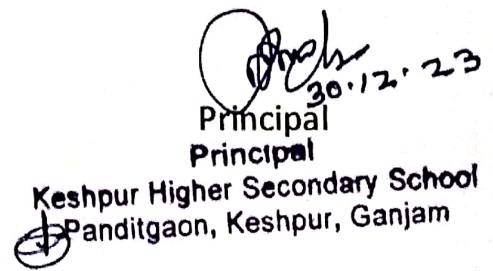 30.12.23
Principal
Principal
Keshpur Higher Secondary School
Panditgaon, Keshpur, Ganjam